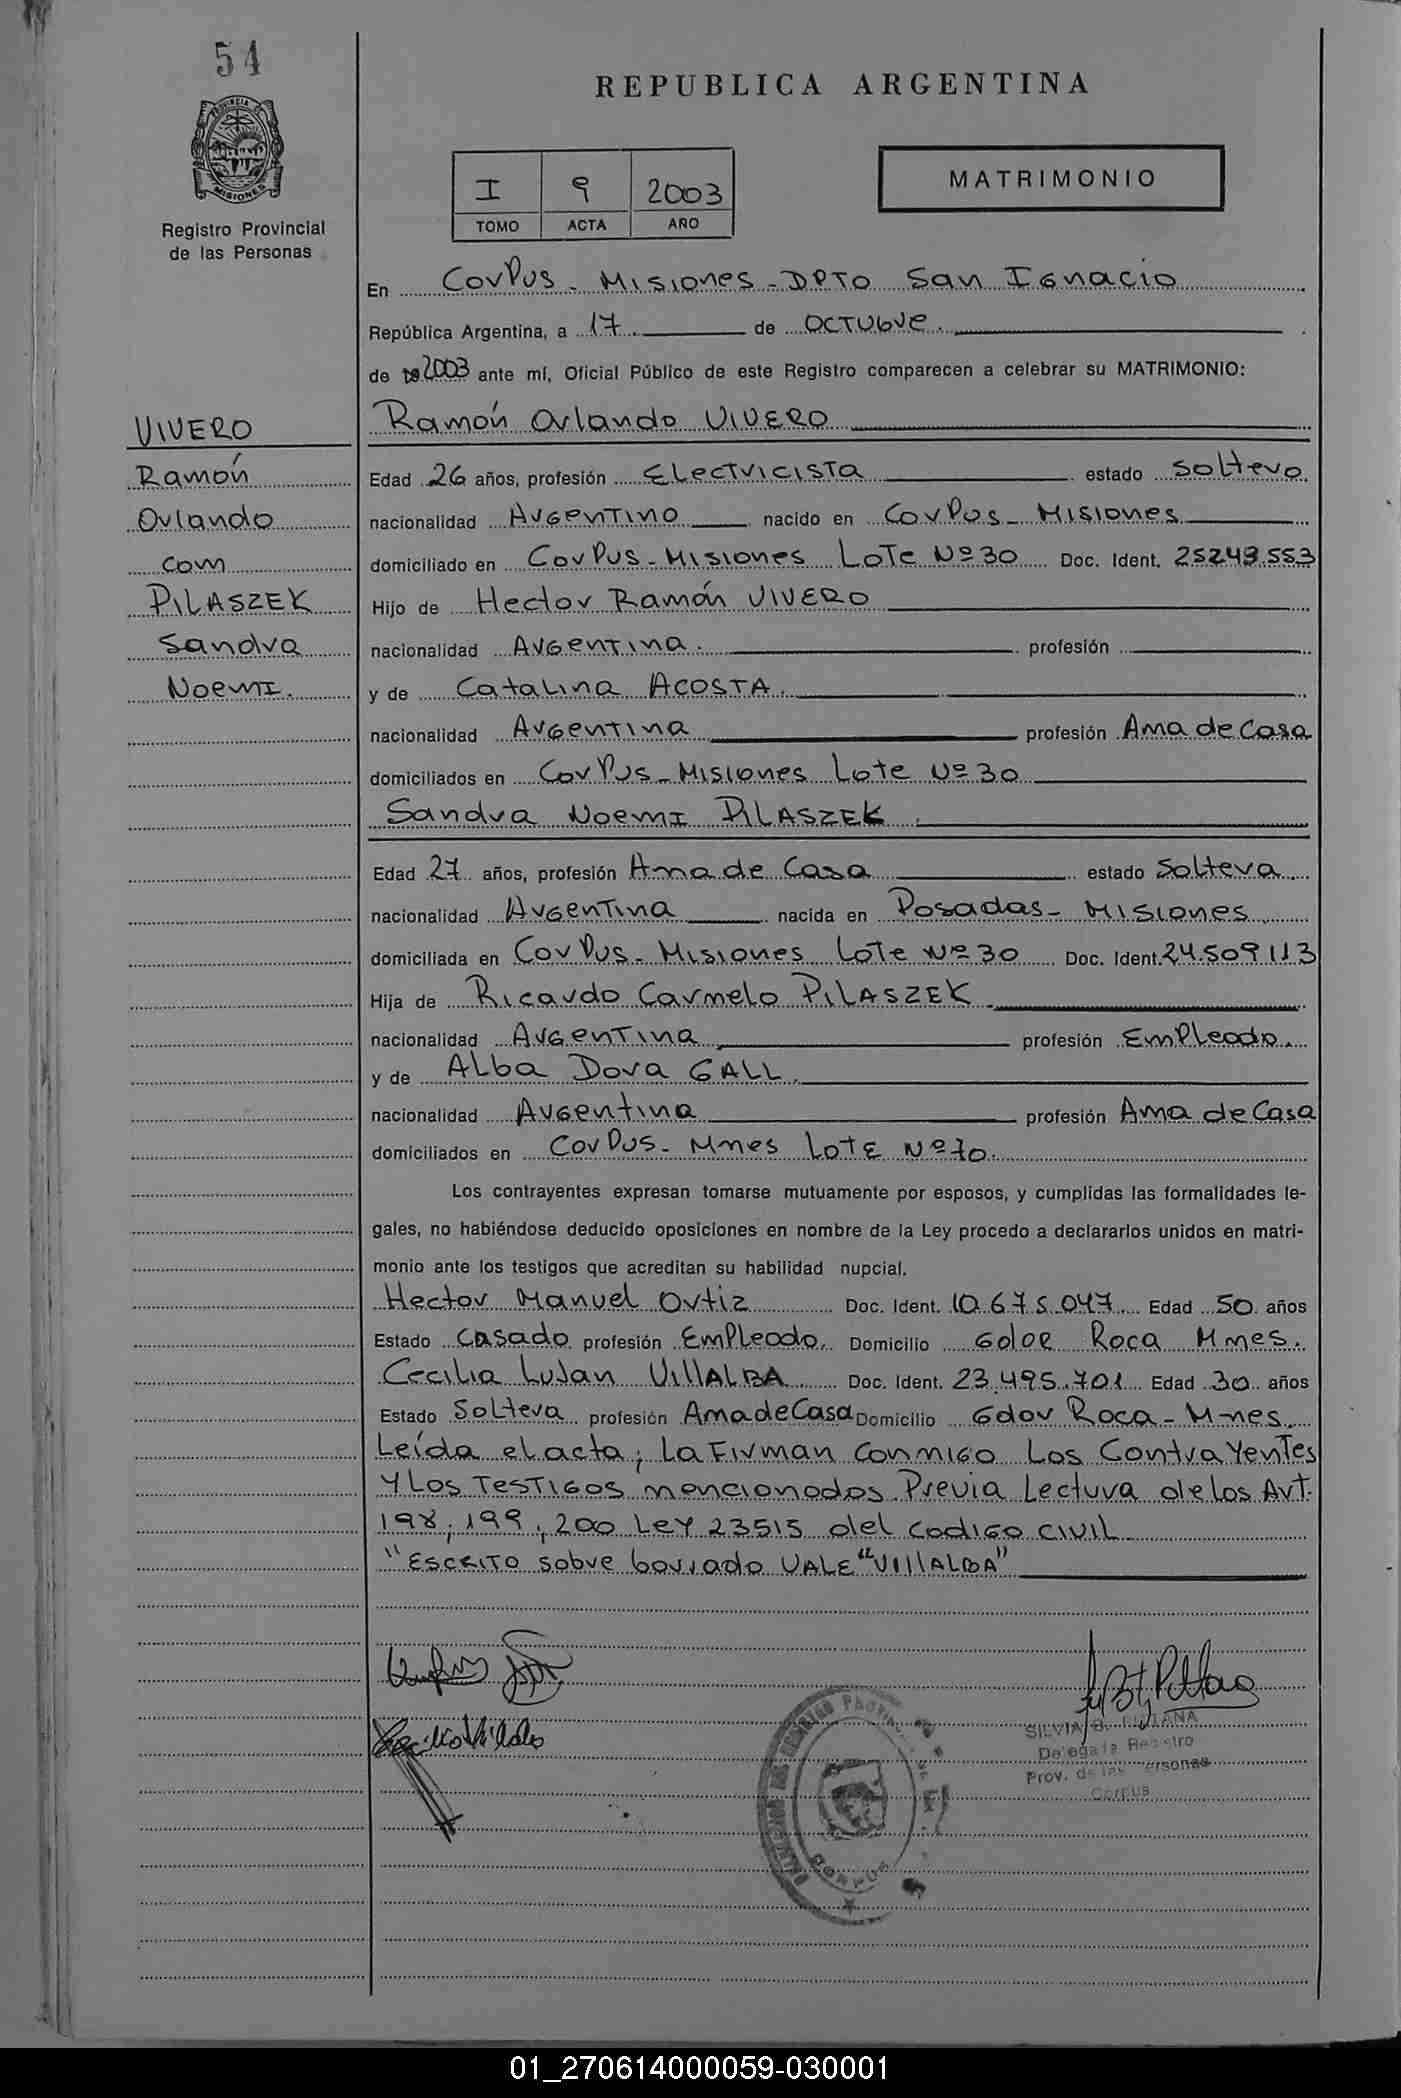 54
REPUBLICA ARGENTINA
PROVINCIA DE MISIONES
Registro Provincial
de las Personas
I 9 2003
TOMO ACTA AÑO
MATRIMONIO
En Corpus - Misiones - DPTO San Ignacio
República Argentina, a 17 de OCTUBre.
de 2003 ante mí, Oficial Público de este Registro comparecen a celebrar su MATRIMONIO:
VIVERO
Ramón
Orlando
com
PILASZEK
Sandra
Noemi.
Ramón Orlando VIVERO
Edad 26 años, profesión Electricista estado soltero
nacionalidad Argentino nacido en Corpus - Misiones
domiciliado en Corpus - Misiones Lote Nº 30 Doc. Ident. 25249.553
Hijo de Hector Ramón VIVERO
nacionalidad Argentina. profesión
y de Catalina ACOSTA.
nacionalidad Argentina profesión Ama de Casa
domiciliados en Corpus - Misiones Lote Nº 30
Sandra Noemi PILASZEK.
Edad 27 años, profesión Ama de Casa estado Soltera
nacionalidad Argentina nacida en Posadas - Misiones
domiciliada en Corpus - Misiones Lote Nº 30 Doc. Ident. 24.509113
Hija de Ricardo Carmelo PILASZEK
nacionalidad Argentina profesión Empleado.
y de Alba Dora GALL.
nacionalidad Argentina profesión Ama de Casa
domiciliados en Corpus - Mnes Lote Nº 70.
Los contrayentes expresan tomarse mutuamente por esposos, y cumplidas las formalidades le-
gales, no habiéndose deducido oposiciones en nombre de la Ley procedo a declararlos unidos en matri-
monio ante los testigos que acreditan su habilidad nupcial.
Hector Manuel Ortiz Doc. Ident. 10.675.047 Edad 50 años
Estado casado profesión Empleado. Domicilio Gdor Roca Mnes.
Cecilia Lujan VillALBA Doc. Ident. 23.495.701 Edad 30 años
Estado Soltera profesión Ama de Casa Domicilio Gdor Roca - Mnes
Leída el acta; la Firman conmigo Los Contrayentes
y Los Testigos mencionados Previa Lectura de los Art.
198, 199, 200 Ley 23515 del codigo civil
"ESCRITO sobre borrado VALE "VIllALBA"
SILVIA B.
Delegada Registro
Prov. de las Personas
Corpus
CORPUS
01_270614000059-030001